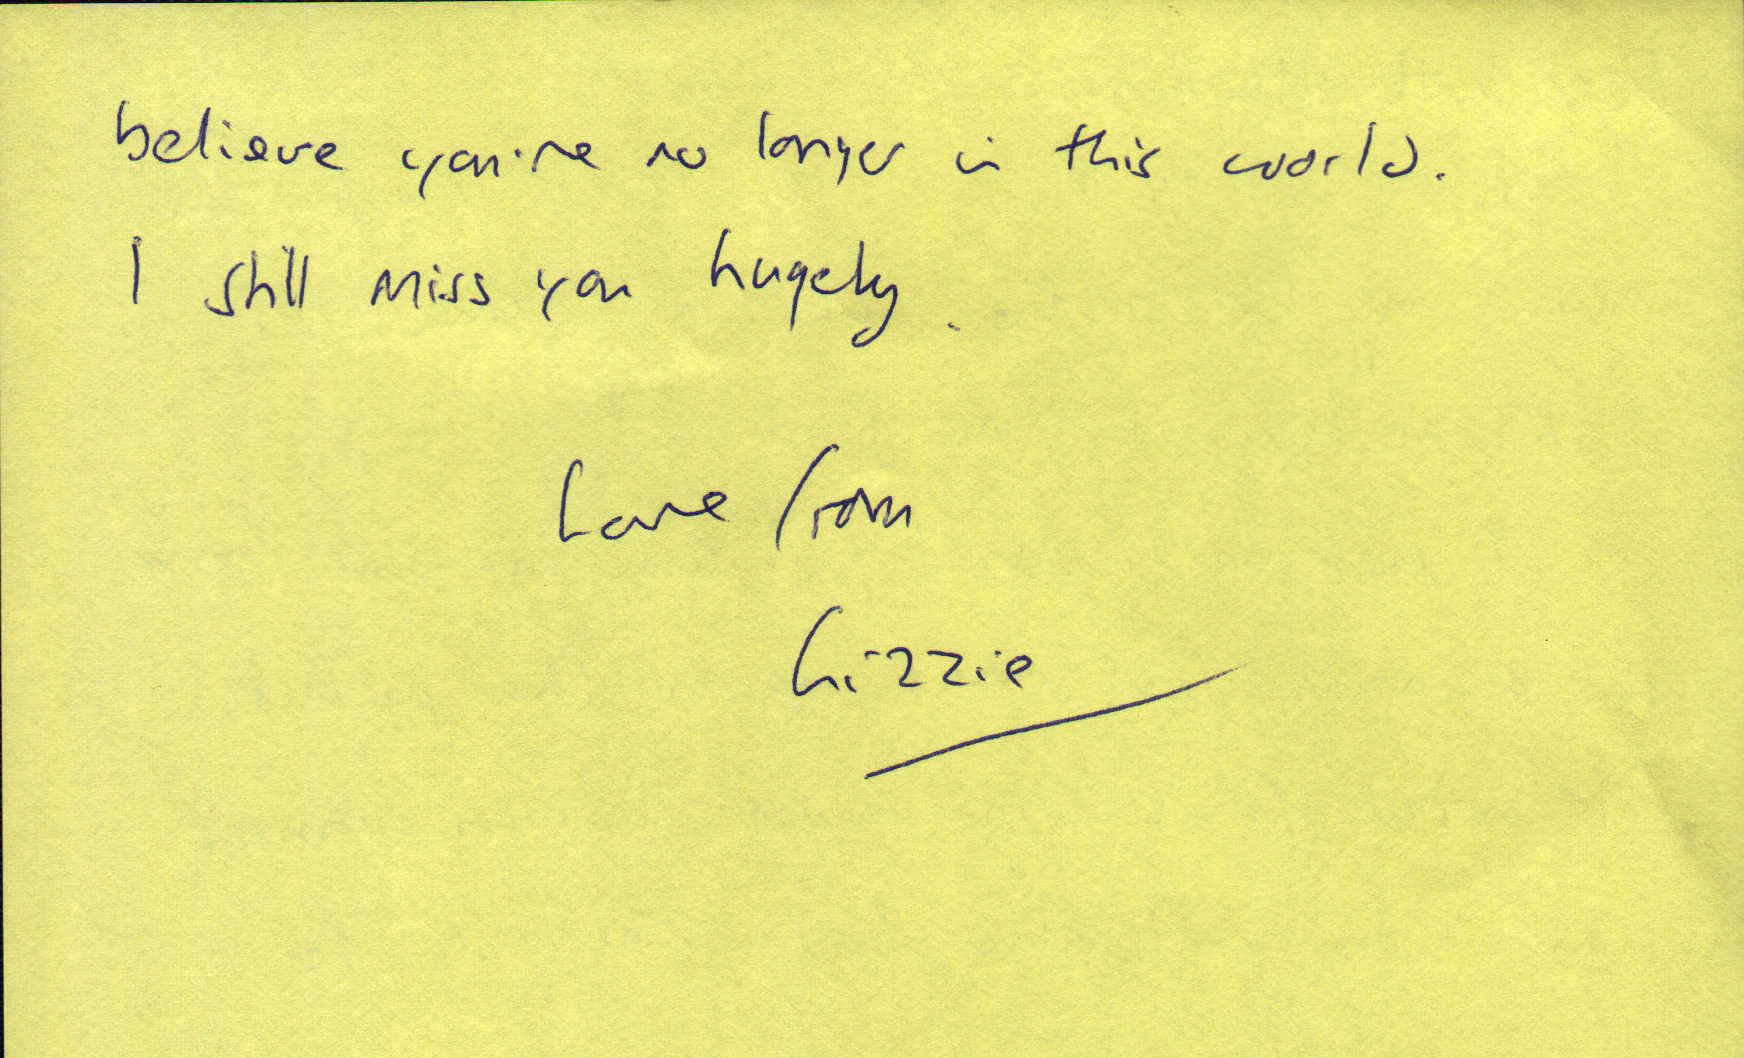 believe you're no longer in this world.
I still miss you hugely.
Love from
Lizzie